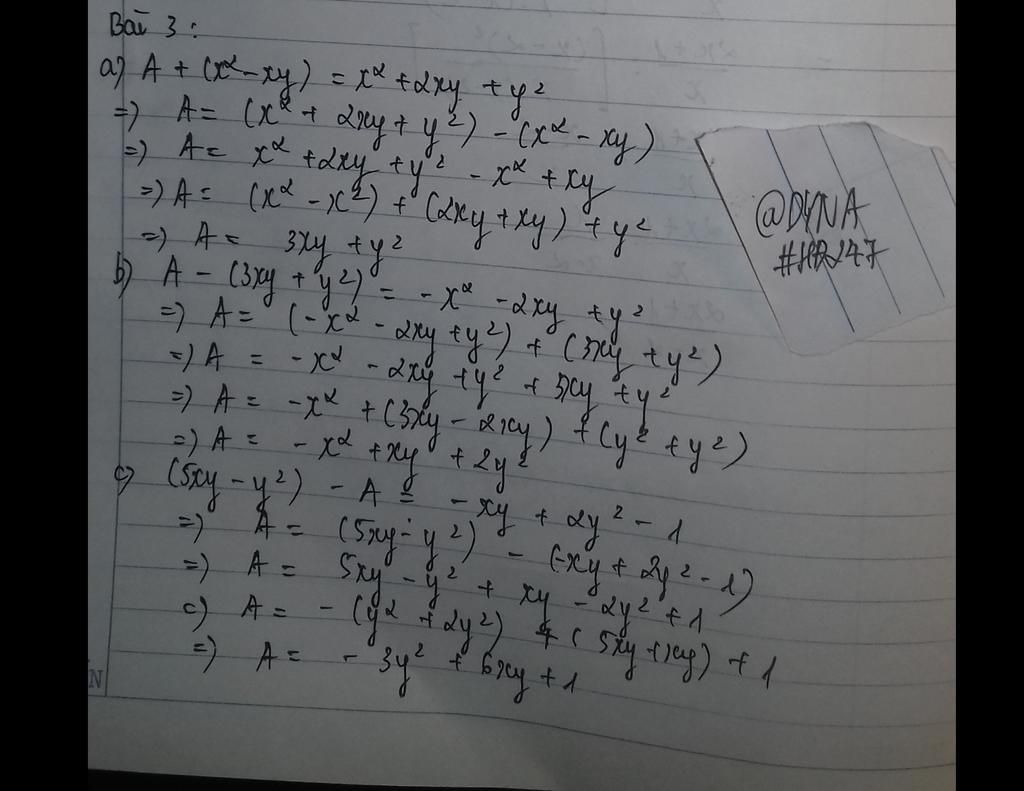 Bài 3:
a) A + (x² - xy) = x² + 2xy + y²
=) A = (x² + 2xy + y²) - (x² - xy)
=) A = x² + 2xy + y² - x² + xy
=) A = (x² - x²) + (2xy + xy) + y²
=) A = 3xy + y²
b) A - (3xy + y²) = -x² - 2xy + y²
=) A = (-x² - 2xy + y²) + (3xy + y²)
=) A = -x² - 2xy + y² + 3xy + y²
=) A = -x² + (3xy - 2xy) + (y² + y²)
=) A = -x² + xy + 2y²
c) (5xy - y²) - A = -xy + 2y² - 1
=) A = (5xy - y²) - (-xy + 2y² - 1)
=) A = 5xy - y² + xy - 2y² + 1
c) A = -(y² + 2y²) + (5xy + xy) + 1
=) A = -3y² + 6xy + 1
@DYNA
N